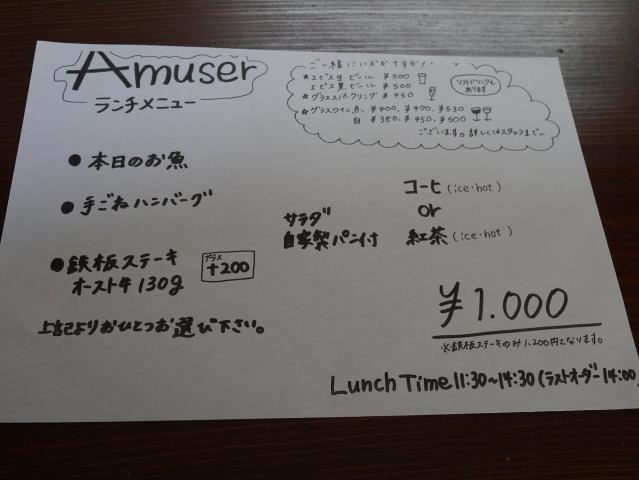 Amuser
ランチメニュー
ご一緒にいかがですか？！
★エビス生ビール ￥500
エビス黒ビール ￥500
★グラススパークリング ￥450
★グラスワイン 赤、￥400、￥470、￥530
白 ￥380、￥450、￥500
ございます。詳しくはスタッフまで…
ソフトドリンクも
あります
● 本日のお魚
● 手ごねハンバーグ
● 鉄板ステーキ
オースト牛 130g
プラス
+200
上記よりおひとつお選び下さい。
サラダ
自家製パン付
コーヒ (ice・hot)
or
紅茶 (ice・hot)
￥1.000
※鉄板ステーキのみ1,200円となります。
Lunch Time 11:30~14:30 (ラストオーダー 14:00)